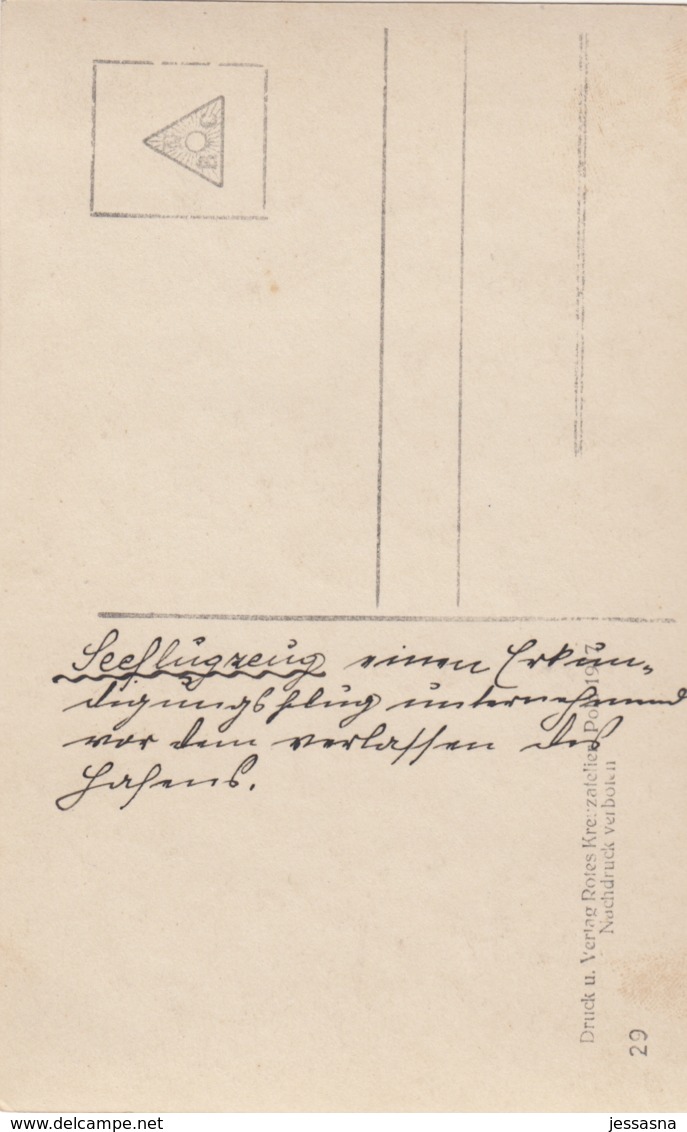 Seeflugzeug einen Erkun-
digungsflug unternehmend
vor dem verlassen des
Hafens.
Druck u. Verlag Rotes Kreuzatelier Pola 1917
Nachdruck verboten
29
delcampe.net
jessasna